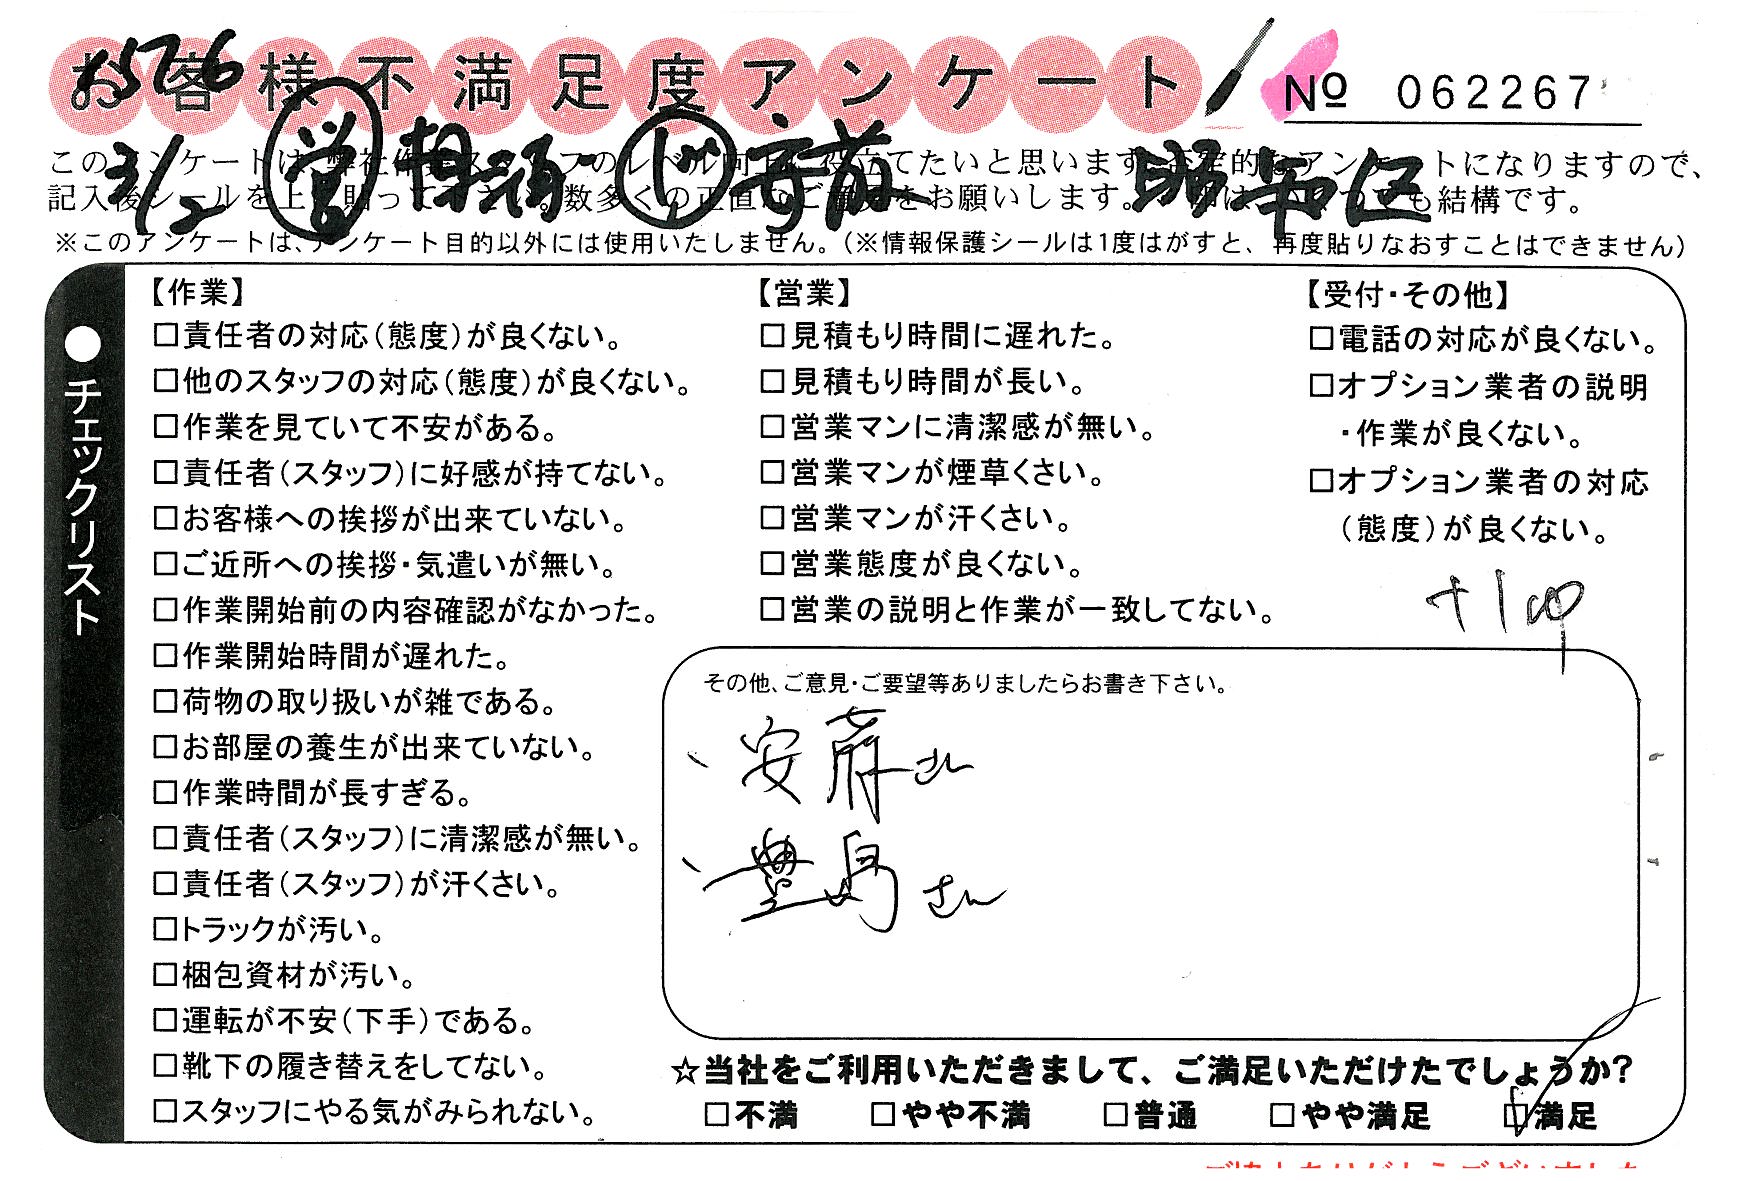 お客様不満足度アンケート
№ 062267
3/2 営 ド 昭和区
このアンケートは、弊社作業スタッフのレベル向上に役立てたいと思います。否定的なアンケートになりますので、
記入後シールを上に貼って下さい。数多くの正直なご意見をお願いします。
※このアンケートは、アンケート目的以外には使用いたしません。(※情報保護シールは1度はがすと、再度貼りなおすことはできません)
●チェックリスト
【作業】
□責任者の対応(態度)が良くない。
□他のスタッフの対応(態度)が良くない。
□作業を見ていて不安がある。
□責任者(スタッフ)に好感が持てない。
□お客様への挨拶が出来ていない。
□ご近所への挨拶・気遣いが無い。
□作業開始前の内容確認がなかった。
□作業開始時間が遅れた。
□荷物の取り扱いが雑である。
□お部屋の養生が出来ていない。
□作業時間が長すぎる。
□責任者(スタッフ)に清潔感が無い。
□責任者(スタッフ)が汗くさい。
□トラックが汚い。
□梱包資材が汚い。
□運転が不安(下手)である。
□靴下の履き替えをしてない。
□スタッフにやる気がみられない。
【営業】
□見積もり時間に遅れた。
□見積もり時間が長い。
□営業マンに清潔感が無い。
□営業マンが煙草くさい。
□営業マンが汗くさい。
□営業態度が良くない。
□営業の説明と作業が一致してない。
【受付・その他】
□電話の対応が良くない。
□オプション業者の説明
・作業が良くない。
□オプション業者の対応
(態度)が良くない。
その他、ご意見・ご要望等ありましたらお書き下さい。
、安斎さん
、豊島さん
☆当社をご利用いただきまして、ご満足いただけたでしょうか?
□不満 □やや不満 □普通 □やや満足 □満足